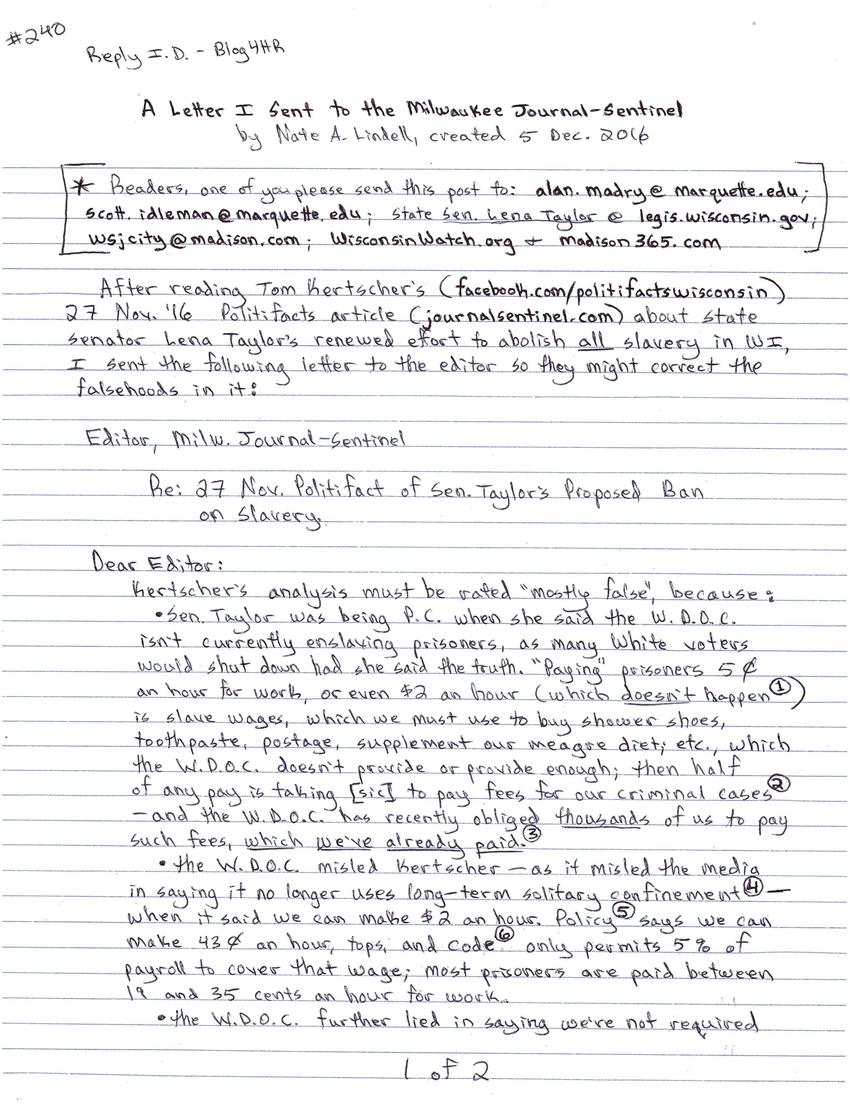 #240
Reply I.D. - Blog4HR
A Letter I Sent to the Milwaukee Journal-Sentinel
by Nate A. Lindell, created 5 Dec. 2016
* Readers, one of you please send this post to: alan.madry@marquette.edu;
scott.idleman@marquette.edu; state Sen. Lena Taylor @ legis.wisconsin.gov;
wsjcity@madison.com; WisconsinWatch.org + Madison365.com
After reading Tom Kertscher's (facebook.com/politifactswisconsin)
27 Nov. '16 Politifacts article (journalsentinel.com) about state
senator Lena Taylor's renewed effort to abolish all slavery in WI,
I sent the following letter to the editor so they might correct the
falsehoods in it:
Editor, Milw. Journal-Sentinel
Re: 27 Nov. Politifact of Sen. Taylor's Proposed Ban
on Slavery.
Dear Editor:
Kertscher's analysis must be rated "mostly false", because:
• Sen. Taylor was being P.C. when she said the W.D.O.C.
isn't currently enslaving prisoners, as many White voters
would shut down had she said the truth. "Paying" prisoners 5¢
an hour for work, or even $2 an hour (which doesn't happen①)
is slave wages, which we must use to buy shower shoes,
toothpaste, postage, supplement our meagre diet; etc., which
the W.D.O.C. doesn't provide or provide enough; then half
of any pay is taking [sic] to pay fees for our criminal cases②
—and the W.D.O.C. has recently obliged thousands of us to pay
such fees, which we've already paid.③
• the W.D.O.C. misled Kertscher — as it misled the media
in saying it no longer uses long-term solitary confinement④ —
when it said we can make $2 an hour. Policy⑤ says we can
make 43¢ an hour, tops, and code⑥ only permits 5% of
payroll to cover that wage; most prisoners are paid between
19 and 35 cents an hour for work.
• the W.D.O.C. further lied in saying we're not required
1 of 2